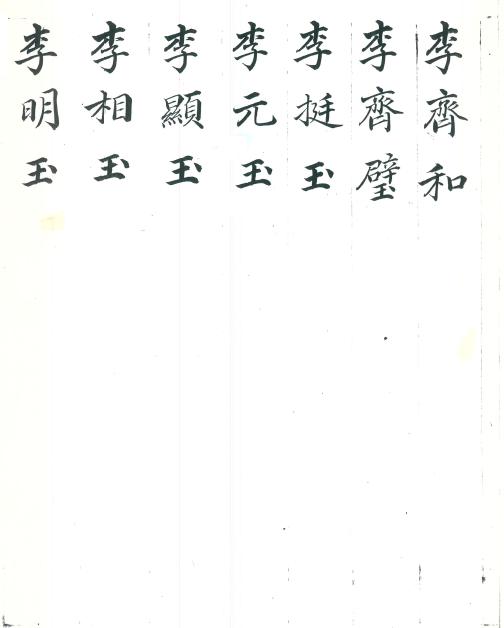 李齊和
李齊璧
李挺玉
李元玉
李顯玉
李相玉
李明玉